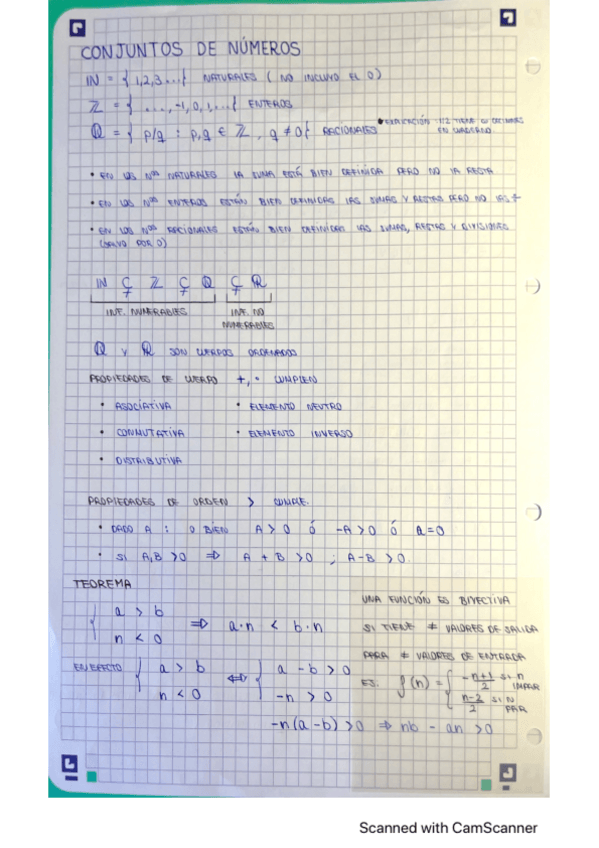 CONJUNTOS DE NÚMEROS
IN = { 1,2,3...} NATURALES ( NO INCLUYO EL 0)
ℤ = { ..., -1, 0, 1, ...} ENTEROS
ℚ = { p/q : p,q ∈ ℤ, q ≠ 0} RACIONALES
EN CUADERNO
• EN LOS Nos NATURALES LA SUMA ESTÁ BIEN DEFINIDA PERO NO LA RESTA
• EN LOS Nos ENTEROS ESTÁN BIEN DEFINIDAS LAS SUMAS Y RESTAS PERO NO LAS ÷
• EN LOS Nos RACIONALES ESTÁN BIEN DEFINIDAS LAS SUMAS, RESTAS Y DIVISIONES
(SALVO POR 0)
IN ⊊ ℤ ⊊ ℚ ⊊ ℝ
INF. NUMERABLES INF. NO
NUMERABLES
ℚ Y ℝ SON CUERPOS ORDENADOS
PROPIEDADES DE CUERPO +, · CUMPLEN
• ASOCIATIVA • ELEMENTO NEUTRO
• CONMUTATIVA • ELEMENTO INVERSO
• DISTRIBUTIVA
PROPIEDADES DE ORDEN > CUMPLE.
• DADO A : O BIEN A > 0 Ó -A > 0 Ó a = 0
• SI A,B > 0 ⇒ A + B > 0 ; A-B > 0.
TEOREMA
{ a > b
n < 0 ⇒ a·n < b·n
EN EFECTO { a > b ⇔ { a - b > 0
n < 0 -n > 0
-n(a-b) > 0 ⇒ nb - an > 0
UNA FUNCIÓN ES BIYECTIVA
SI TIENE ≠ VALORES DE SALIDA
PARA ≠ VALORES DE ENTRADA
ES: f(n) = { -n+1/2 SI n IMPAR
n-2/2 SI N PAR
Scanned with CamScanner